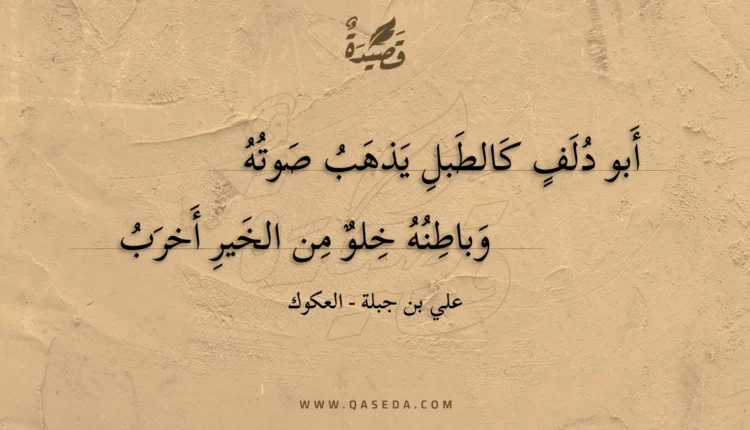 قَصِيدَةٌ
أَبو دُلَفٍ كَالطَبلِ يَذهَبُ صَوتُهُ
وَباطِنُهُ خِلوٌ مِن الخَيرِ أَخرَبُ
علي بن جبلة - العكوك
WWW.QASEDA.COM